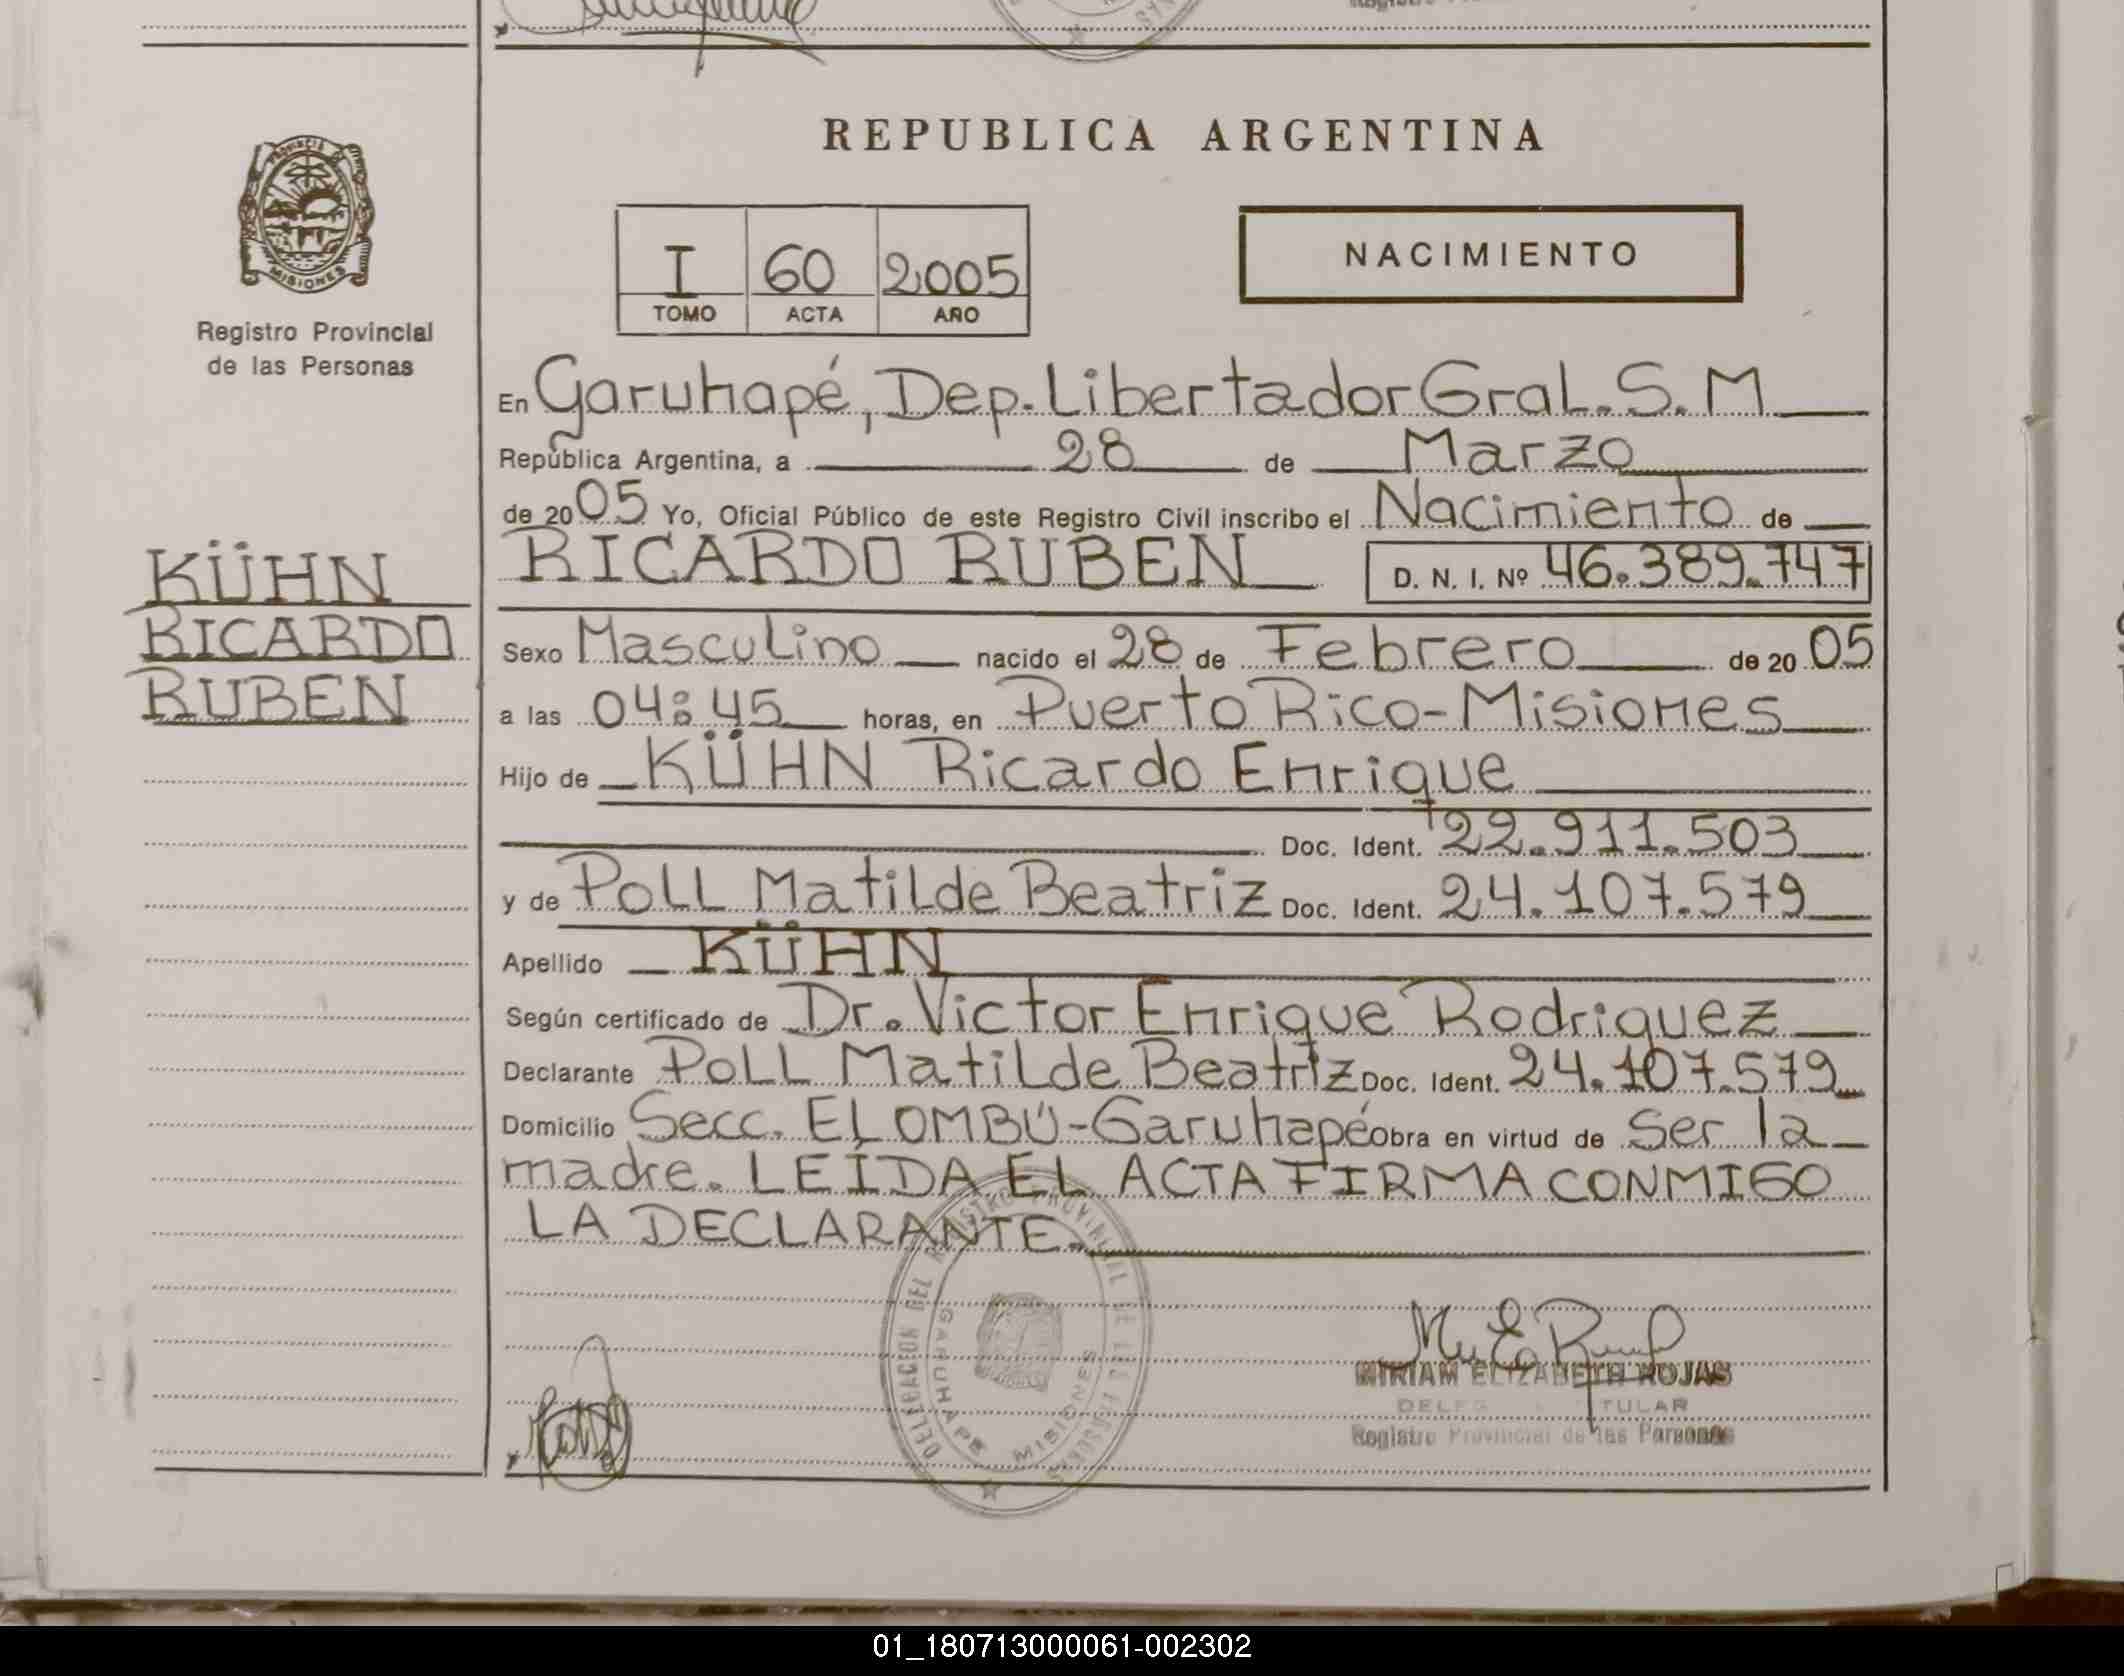 REPUBLICA ARGENTINA
PROVINCIA DE
MISIONES
Registro Provincial
de las Personas
I 60 2005
TOMO ACTA AÑO
NACIMIENTO
En Garuhapé, Dep. Libertador Gral. S. M
República Argentina, a 28 de Marzo
de 2005 Yo, Oficial Público de este Registro Civil inscribo el Nacimiento de
RICARDO RUBEN D. N. I. Nº 46.389.747
KÜHN
RICARDO
RUBEN
Sexo Masculino nacido el 28 de Febrero de 2005
a las 04:45 horas, en Puerto Rico - Misiones
Hijo de KÜHN Ricardo Enrique
Doc. Ident. 22.911.503
y de POLL Matilde Beatriz Doc. Ident. 24.107.579
Apellido KÜHN
Según certificado de Dr. Victor Enrique Rodriguez
Declarante POLL Matilde Beatriz Doc. Ident. 24.107.579
Domicilio Secc. EL OMBÚ - Garuhapé obra en virtud de ser la
madre. LEÍDA EL ACTA FIRMA CONMIGO
LA DECLARANTE.
DELEGACION DEL REGISTRO PROVINCIAL DE LAS PERSONAS
GARUHAPE MISIONES
MIRIAM ELIZABETH ROJAS
TULAR
Registro Provincial de las Personas
01_180713000061-002302